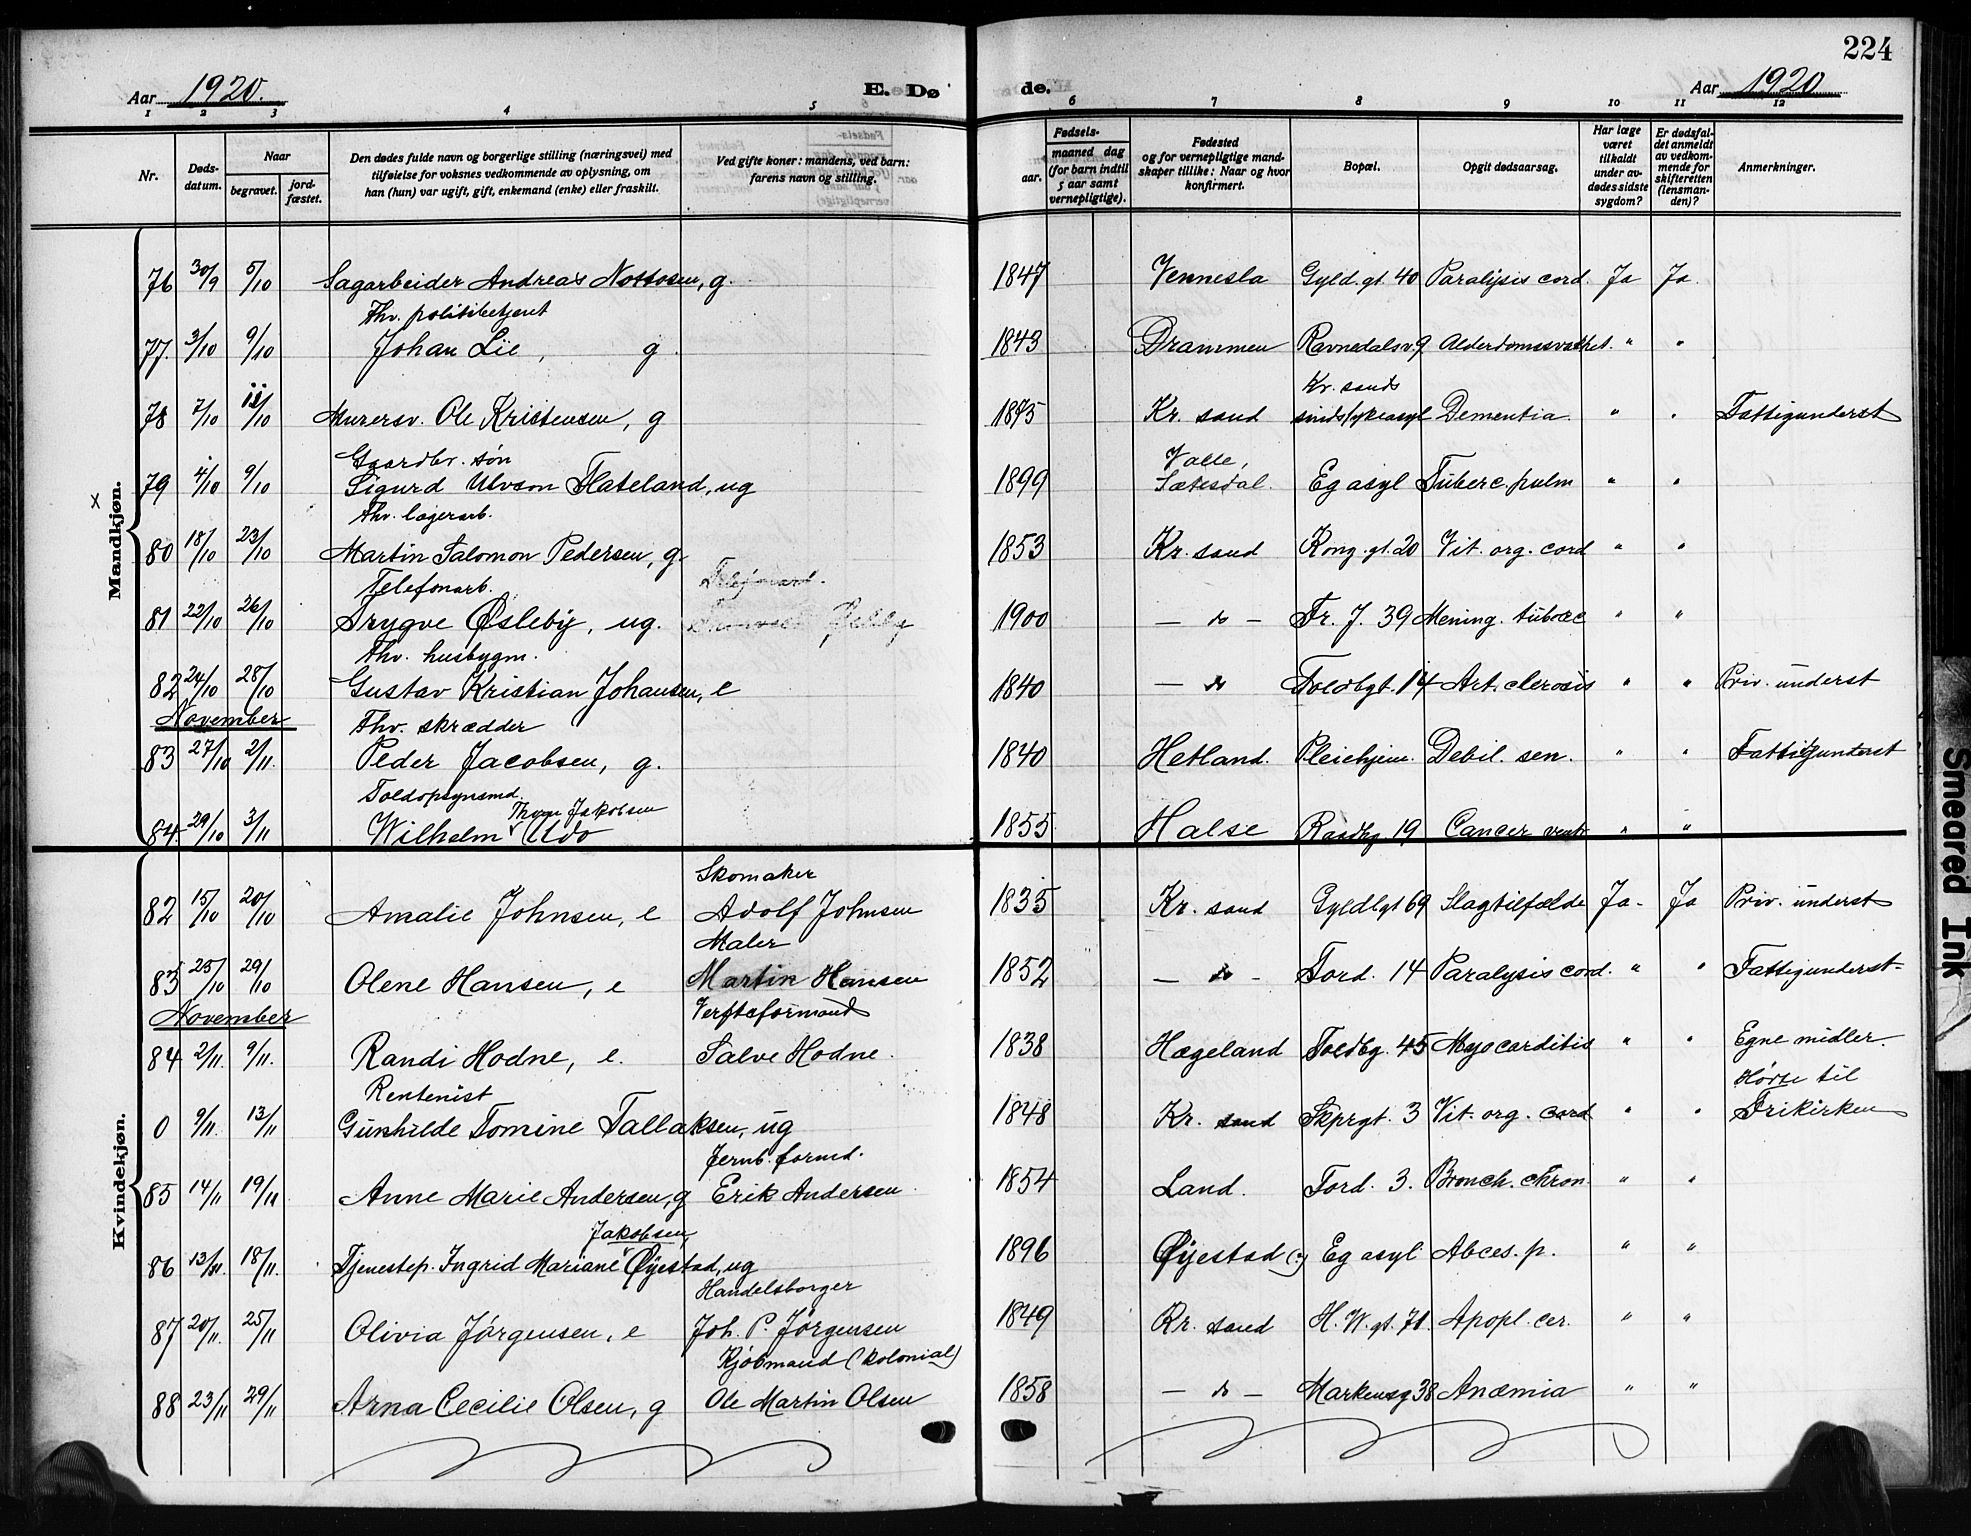 224
Aar 1920. E. Dø de. Aar 1920
1 2 3 4 5 6 7 8 9 10 11 12
Nr. Døds-datum. Naar begravet. jord-fæstet. Den dødes fulde navn og borgerlige stilling (næringsvei) med tilføielse for voksnes vedkommende av oplysning, om han (hun) var ugift, gift, enkemand (enke) eller fraskilt. Ved gifte koner: mandens, ved barn: farens navn og stilling. Fødsels- aar. maaned dag (for barn indtil 5 aar samt vernepligtige). Fødested og for vernepligtige mand-skaper tillike: Naar og hvor konfirmert. Bopæl. Opgit dødsaarsag. Har læge været tilkaldt under av-dødes sidste sygdom? Er dødsfal-det anmeldt av vedkom-mende for skifteretten (lensman-den)? Anmerkninger.
Mandkjøn.
76 30/9 5/10 Sagarbeider Andreas Nottosen, g. 1847 Vennesla Gyld. gt 40 Paralysis cord. Ja Ja
Fhv. politibetjent
77. 3/10 9/10 Johan Lie, g 1843 Drammen Ravnedalsv. 9 " "
Kr. sands
78 7/10 11/10 Murersv. Ole Kristensen, g 1875 Kr. sand sindssykeasyl Dementia " " Fattigunderst
Gaardbr. søn Valle,
79 4/10 9/10 Sigurd Ulvson Flateland, ug 1899 Sætesdal. Eg asyl Tuberc. pulm " "
Fhv. lagerarb.
80 18/10 23/10 Martin Salomon Pedersen, g. 1853 Kr. sand Kong. gt. 20 Vit. org. cord " "
Telefonarb.
81 22/10 26/10 Trygve Østeby, ug. 1900 — do — Fr. J. 39 Mening. tuberc " "
Fhv. husbygm.
82 24/10 28/10 Gustav Kristian Johansen, e 1840 — do Toldbgt. 14 Art. clerosis " " Priv. underst
November Fhv. skrædder
83 27/10 2/11. Peder Jacobsen, g. 1840 Hetland. Pleiehjem. Debil. sen. " " Fattigunderst
Toldopsynsmd.
Thom Jakobsen
84. 29/10 3/11 Wilhelm Udo 1855 Halse Raadhg 19 Cancer ventr " "
Kvindekjøn.
Skomaker
82 15/10 20/10 Amalie Johnsen, e Adolf Johnsen 1835 Kr. sand Gyldlgt 69 Slagtilfælde Ja - Ja Priv. underst
Maler
83 25/10 29/10 Olene Hansen, e Martin Hansen 1852 — do - Tord. 14 Paralysis cord. " " Fattigunderst-
November Verftsformand
84 2/11. 9/11. Randi Hodne, e. Salve Hodne. 1838 Hægeland Toldbg. 45 Myocarditis " " Egne midler.
Rentenist Hørte til
0 9/11. 13/11 Gunhilde Tomine Tallaksen, ug 1848 Kr. sand Skprgt. 3 Vit. org. cord " " Frikirken
Jernb. formd.
85 14/11 19/11 Anne Marie Andersen, g Erik Andersen. 1854 Land. Tord. 3. Bronch. chron " "
Jakobsen
86 13/11. 18/11. Tjenestep. Ingrid Mariane Øyestad, ug 1896 Øyestad (?) Eg asyl Abces. p. " "
Handelsborger
87 20/11. 25/11 Olivia Jørgensen, e Joh. P. Jørgensen 1849 Kr. sand H. W. gt. 71. Apopl. cer. " "
Kjøbmand (kolonial)
88 23/11 29/11 Arna Cecilie Olsen, g Ole Martin Olsen 1858 — do — Markensg 38 Anæmia " "
Smeared Ink